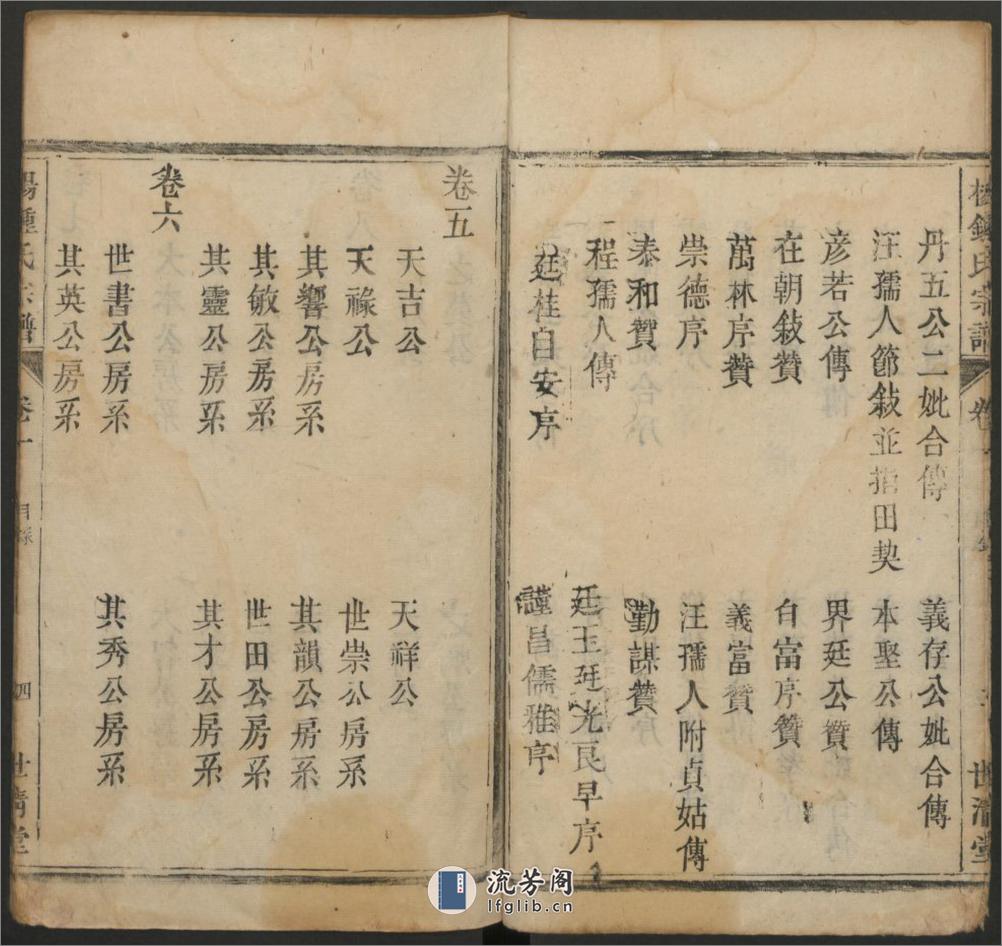 氏宗譜
卷
世濟堂
丹五公二妣合傳
義存公妣合傳
汪孺人節敍並捐田契
本聖公傳
彦若公傳
界廷公贊
在朝敍贊
白富序贊
萬林序贊
義富贊
崇德序
汪孺人附貞姑傳
泰和贊
勤謀贊
程孺人傳
廷玉廷光良早序
廷桂自安序
謹昌儒雅序
卷五
天吉公
天祥公
天祿公
世崇公房系
其響公房系
其韻公房系
其敏公房系
世田公房系
其靈公房系
其才公房系
卷六
世書公房系
其秀公房系
其英公房系
氏宗譜
卷一
目錄
四
世濟堂
流芳阁
lfglib.cn